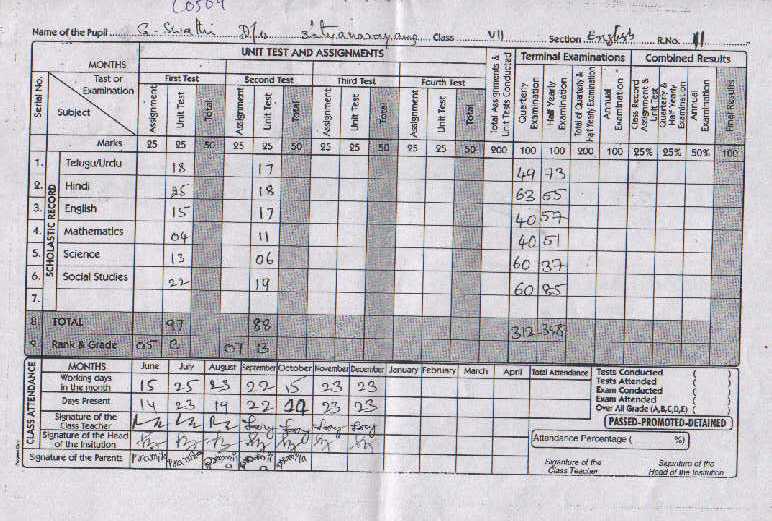 C0504
Name of the Pupil G. Swathi D/o Satyanarayana Class VII Section English R.No. 11
UNIT TEST AND ASSIGNMENTS Terminal Examinations Combined Results
MONTHS
Serial No. Test or Examination Subject First Test Second Test Third Test Fourth Test
Assignment Unit Test Total Assignment Unit Test Total Assignment Unit Test Total Assignment Unit Test Total Total Assignments & Unit Tests Conducted Quarterly Examination Half Yearly Examination Total of Quarterly & Half Yearly Examination Annual Examination Class Record Assignment & Unit Test Quarterly & Half Yearly Examination Annual Examination Final Results
Marks 25 25 50 25 25 50 25 25 50 25 25 50 200 100 100 200 100 25% 25% 50% 100
SCHOLASTIC RECORD
1. Telugu/Urdu 18 17 49 73
2. Hindi 25 18 63 65
3. English 15 17 40 57
4. Mathematics 04 11 40 51
5. Science 13 06 60 37
6. Social Studies 22 19 60 85
7.
8. TOTAL 97 88 312
9. Rank & Grade 05 C 07 B
CLASS ATTENDANCE
MONTHS June July August September October November December January February March April Total Attendance
Working days in the month 15 25 23 22 15 23 23
Days Present 14 23 19 22 23 23
Signature of the Class Teacher
Signature of the Head of the Institution
Signature of the Parents
Tests Conducted ( )
Tests Attended ( )
Exam Conducted ( )
Exam Attended ( )
Over All Grade (A,B,C,D,E) ( )
PASSED-PROMOTED-DETAINED
Attendance Percentage ( %)
Signature of the Class Teacher Signature of the Head of the Institution